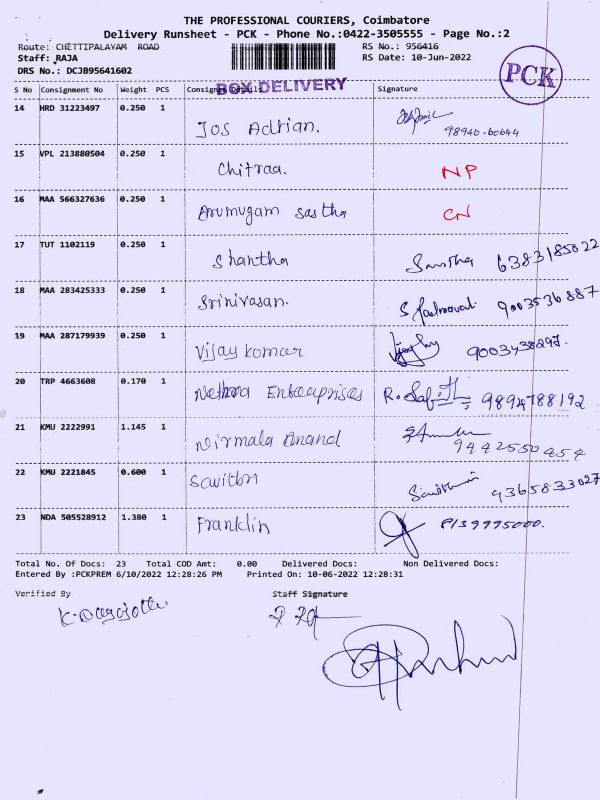 THE PROFESSIONAL COURIERS, Coimbatore
Delivery Runsheet - PCK - Phone No.:0422-3505555 - Page No.:2
Route: CHETTIPALAYAM ROAD RS No.: 956416
Staff: RAJA RS Date: 10-Jun-2022
DRS No.: DCJB95641602
PCK
BOX DELIVERY
S No Consignment No Weight PCS Consignee Details Signature
14 HRD 31223497 0.250 1 Jos Adrian. 98940-60644
15 VPL 213880504 0.250 1 Chitraa. NP
16 MAA 566327636 0.250 1 Arumugam sastha CN
17 TUT 1102119 0.250 1 Shantha 6383185022
18 MAA 283425333 0.250 1 Srinivasan. 9003536887
19 MAA 287179939 0.250 1 Vijay komar 9003438297.
20 TRP 4663608 0.170 1 Nethra Enterprises 9894788192
21 KMU 2222991 1.145 1 Nirmala Anand 9442550454
22 KMU 2221845 0.600 1 Savithri 9365833027
23 NDA 505528912 1.380 1 Franklin
Total No. Of Docs: 23 Total COD Amt: 0.00 Delivered Docs: Non Delivered Docs:
Entered By :PCKPREM 6/10/2022 12:28:26 PM Printed On: 10-06-2022 12:28:31
Verified By Staff Signature